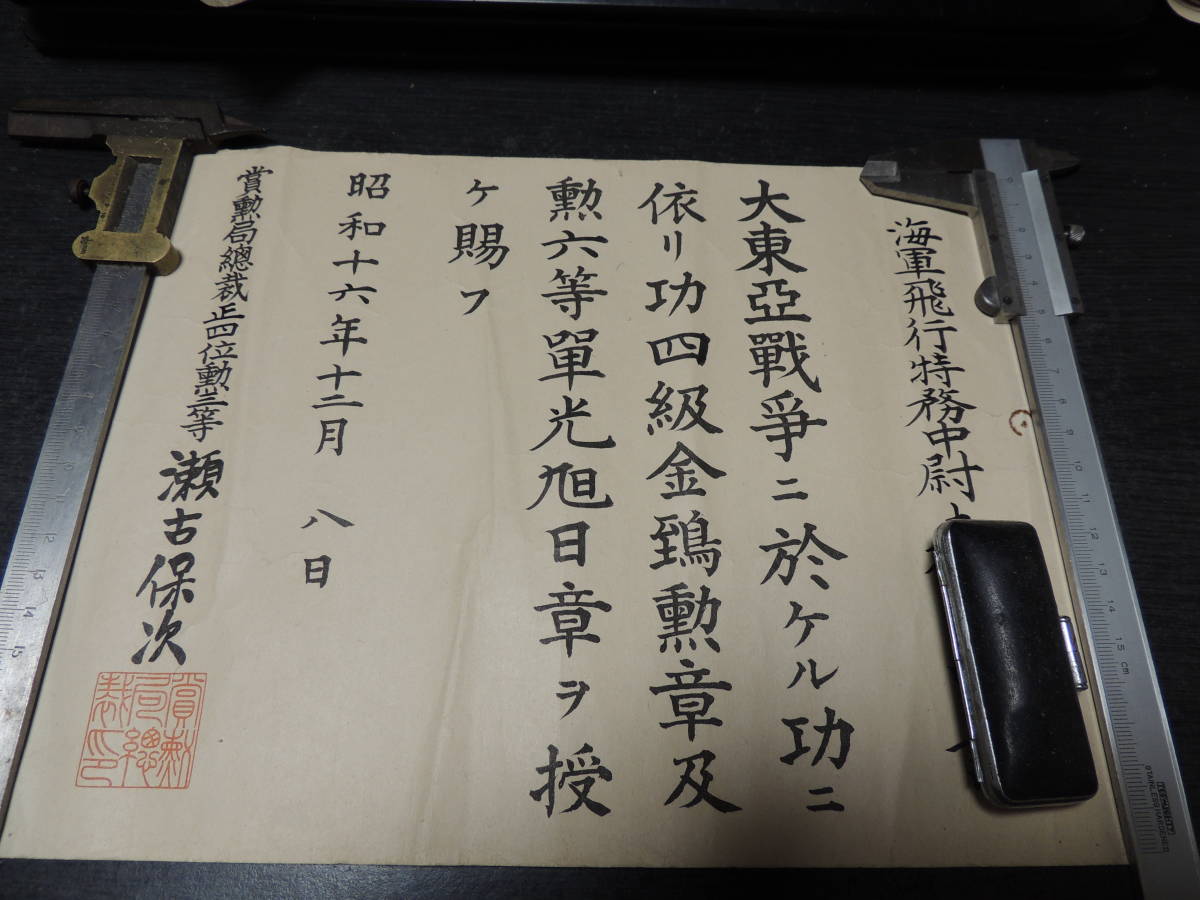 海軍飛行特務中尉
大東亞戰爭ニ於ケル功ニ
依リ功四級金鵄勲章及
勲六等單光旭日章ヲ授
ケ賜フ
昭和十六年十二月八日
賞勲局總裁正四位勲三等瀬古保次
賞勲
局總
裁印